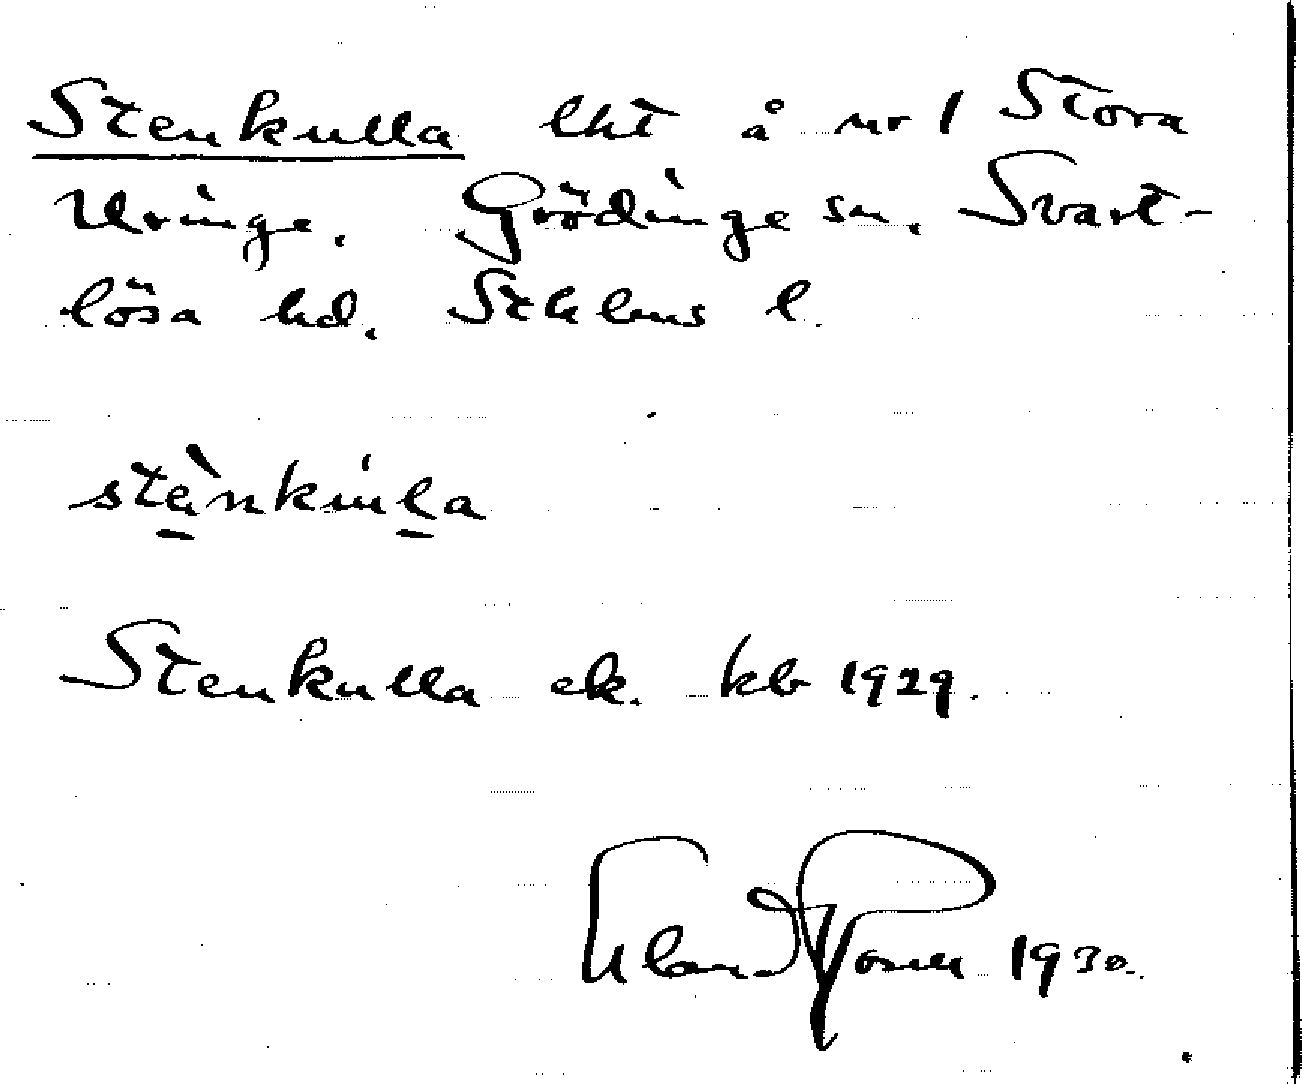 Stenkulla lht å nr 1 Stora
Uringe. Grödinge sn. Svart-
lösa hd. Sthlms l.
Stenkulla ek. kb 1929.
1930.